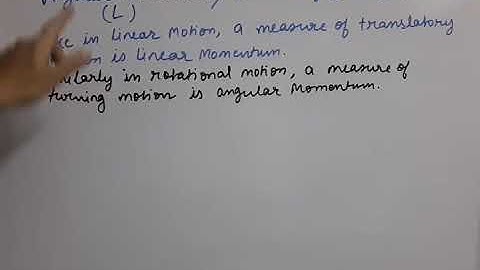 (L)
in Linear Motion, a measure of translatory
is Linear Momentum.
in rotational motion, a measure of
turning motion is angular Momentum.